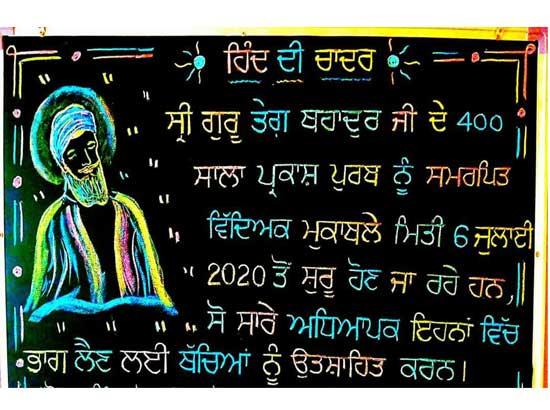 ਹਿੰਦ ਦੀ ਚਾਦਰ
ਸ੍ਰੀ ਗੁਰੂ ਤੇਗ਼ ਬਹਾਦੁਰ ਜੀ ਦੇ 400
ਸਾਲਾ ਪ੍ਰਕਾਸ਼ ਪੁਰਬ ਨੂੰ ਸਮਰਪਿਤ
ਵਿੱਦਿਅਕ ਮੁਕਾਬਲੇ ਮਿਤੀ 6 ਜੁਲਾਈ
2020 ਤੋਂ ਸ਼ੁਰੂ ਹੋਣ ਜਾ ਰਹੇ ਹਨ,
ਸੋ ਸਾਰੇ ਅਧਿਆਪਕ ਇਹਨਾਂ ਵਿੱਚ
ਭਾਗ ਲੈਣ ਲਈ ਬੱਚਿਆਂ ਨੂੰ ਉਤਸ਼ਾਹਿਤ ਕਰਨ।